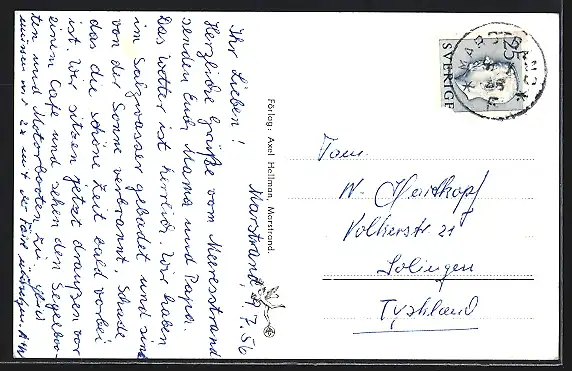 Marstrand 9.7.56
Ihr Lieben!
Herzliche Grüße vom Meeresstrand
senden Euch Mama und Papa.
Das Wetter ist herrlich. Wir haben
im Salzwasser gebadet und sind
von der Sonne verbrannt. Schade
das die schöne Zeit bald vorbei
ist. Wir sitzen jetzt draußen vor
einem Cafe und sehen den Segelboo-
ten und Motorbooten zu.
müssen wir
Förlag: Axel Hellman, Marstrand.
SVERIGE
25
Fam.
W.
Volkerstr 21
Solingen
Tyskland